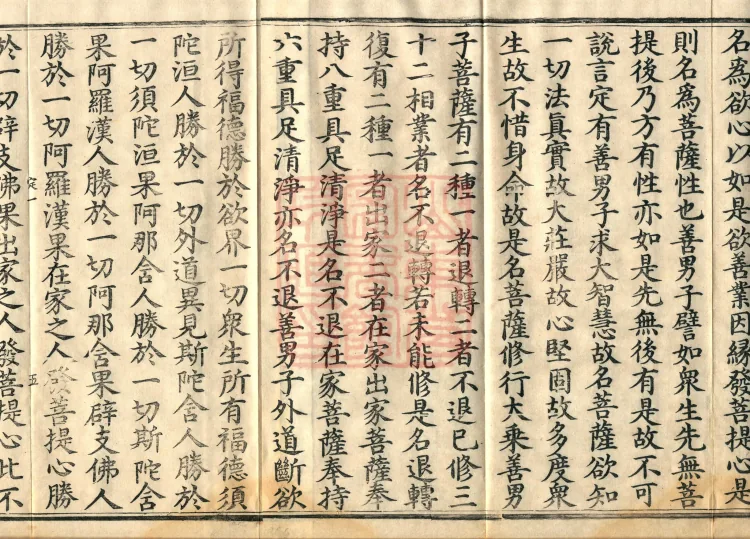 名爲欲心以如是欲善業因縁發菩提心是
則名爲菩薩性也善男子譬如衆生先無菩
提後乃方有性亦如是先無後有是故不可
說言定有善男子求大智慧故名菩薩欲知
一切法真實故大莊嚴故心堅固故多度衆
生故不惜身命故是名菩薩修行大乘善男
子菩薩有二種一者退轉二者不退已修三
十二相業者名不退轉若未能修是名退轉
復有二種一者出家二者在家出家菩薩奉
持八重具足清淨是名不退在家菩薩奉持
六重具足清淨亦名不退善男子外道斷欲
所得福德勝於欲界一切衆生所有福德須
陀洹人勝於一切外道異見斯陀含人勝於
一切須陀洹果阿那含人勝於一切斯陀含
果阿羅漢人勝於一切阿那含果辟支佛人
勝於一切阿羅漢果在家之人發菩提心勝
定一
五
於一切辟支佛果出家之人發菩提心此不